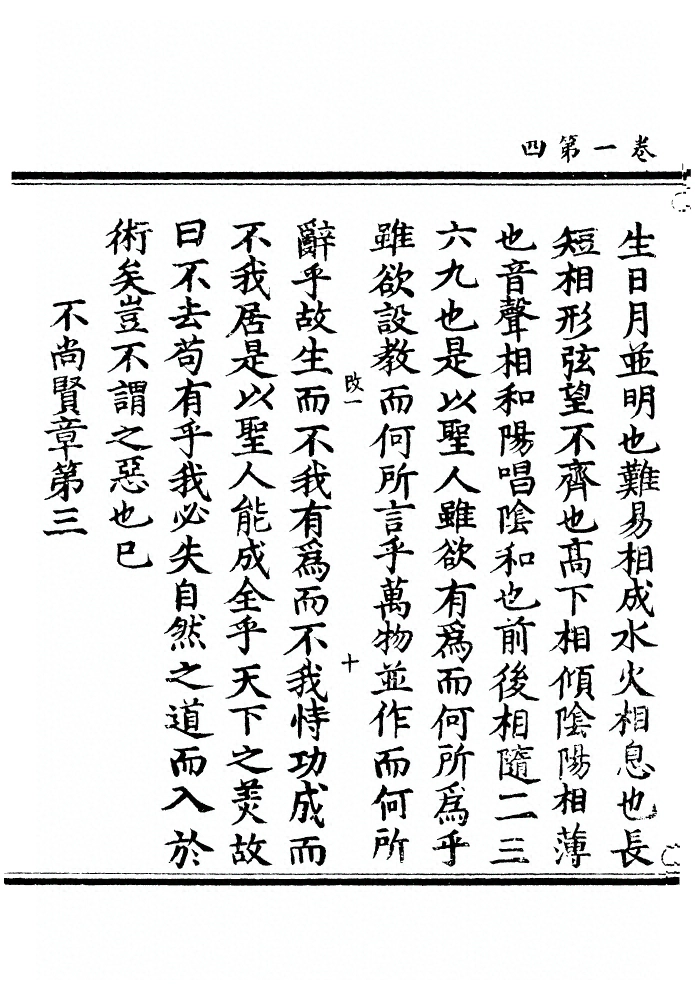 卷一第四
生日月並明也難易相成水火相息也長
短相形弦望不齊也髙下相傾陰陽相薄
也音聲相和陽唱陰和也前後相隨二三
六九也是以聖人雖欲有爲而何所爲乎
雖欲設教而何所言乎萬物並作而何所
改一 十
辭乎故生而不我有爲而不我恃功成而
不我居是以聖人能成全乎天下之羙故
曰不去苟有乎我必失自然之道而入於
術矣豈不謂之惡也已
不尚賢章第三